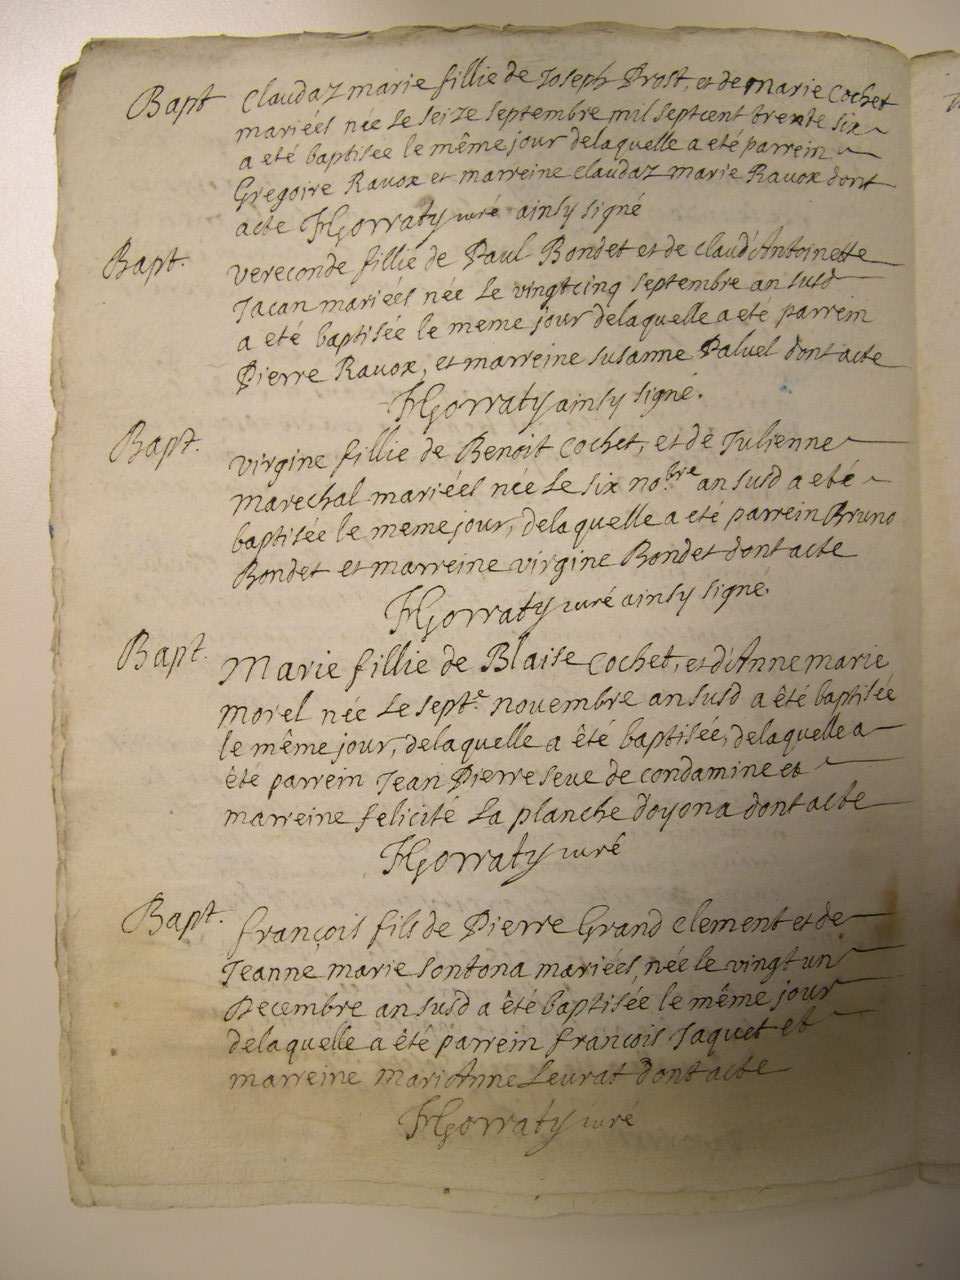 Bapt Claudaz marie fillie de Joseph Prost, et de marie Cochet
mariées née le seize septembre mil septcent trente six
a eté baptisee le même jour delaquelle a eté parrein
Gregoire Ravox et marreine claudaz marie Ravox dont
acte FHGorraty curé ainsy signé
Bapt. vereconde fillie de Paul Bondet et de claud'Antoinette
Jacan mariées née le vingtcinq septembre an susd
a eté baptisée le meme jour delaquelle a eté parrein
Pierre Ravox, et marreine susanne Paluel dont acte
FHGorraty ainsy signé.
Bapt. virgine fillie de Benoit Cochet, et de Julienne
marechal mariées née le six no.bre an susd a eté
baptisée le meme jour, delaquelle a eté parrein Bruno
Bondet et marreine virgine Bondet dont acte
FHGorraty curé ainsy signé.
Bapt. Marie fillie de Blaise Cochet, et d'Anne marie
morel née le sept.e novembre an susd a êté baptisée
le même jour, delaquelle a êté baptisée, delaquelle a
êté parrein Jean Pierre seve de condamine et
marreine felicité la planche d'oyona dont acte
FHGorraty curé
Bapt. françois fils de Pierre Grand clement et de
Jeanne marie sontona mariées, née le vingt un
Decembre an susd a êté baptisée le même jour
delaquelle a êté parrein françois Jaquet et
marreine mariAnne Leurat dont acte
FHGorraty curé